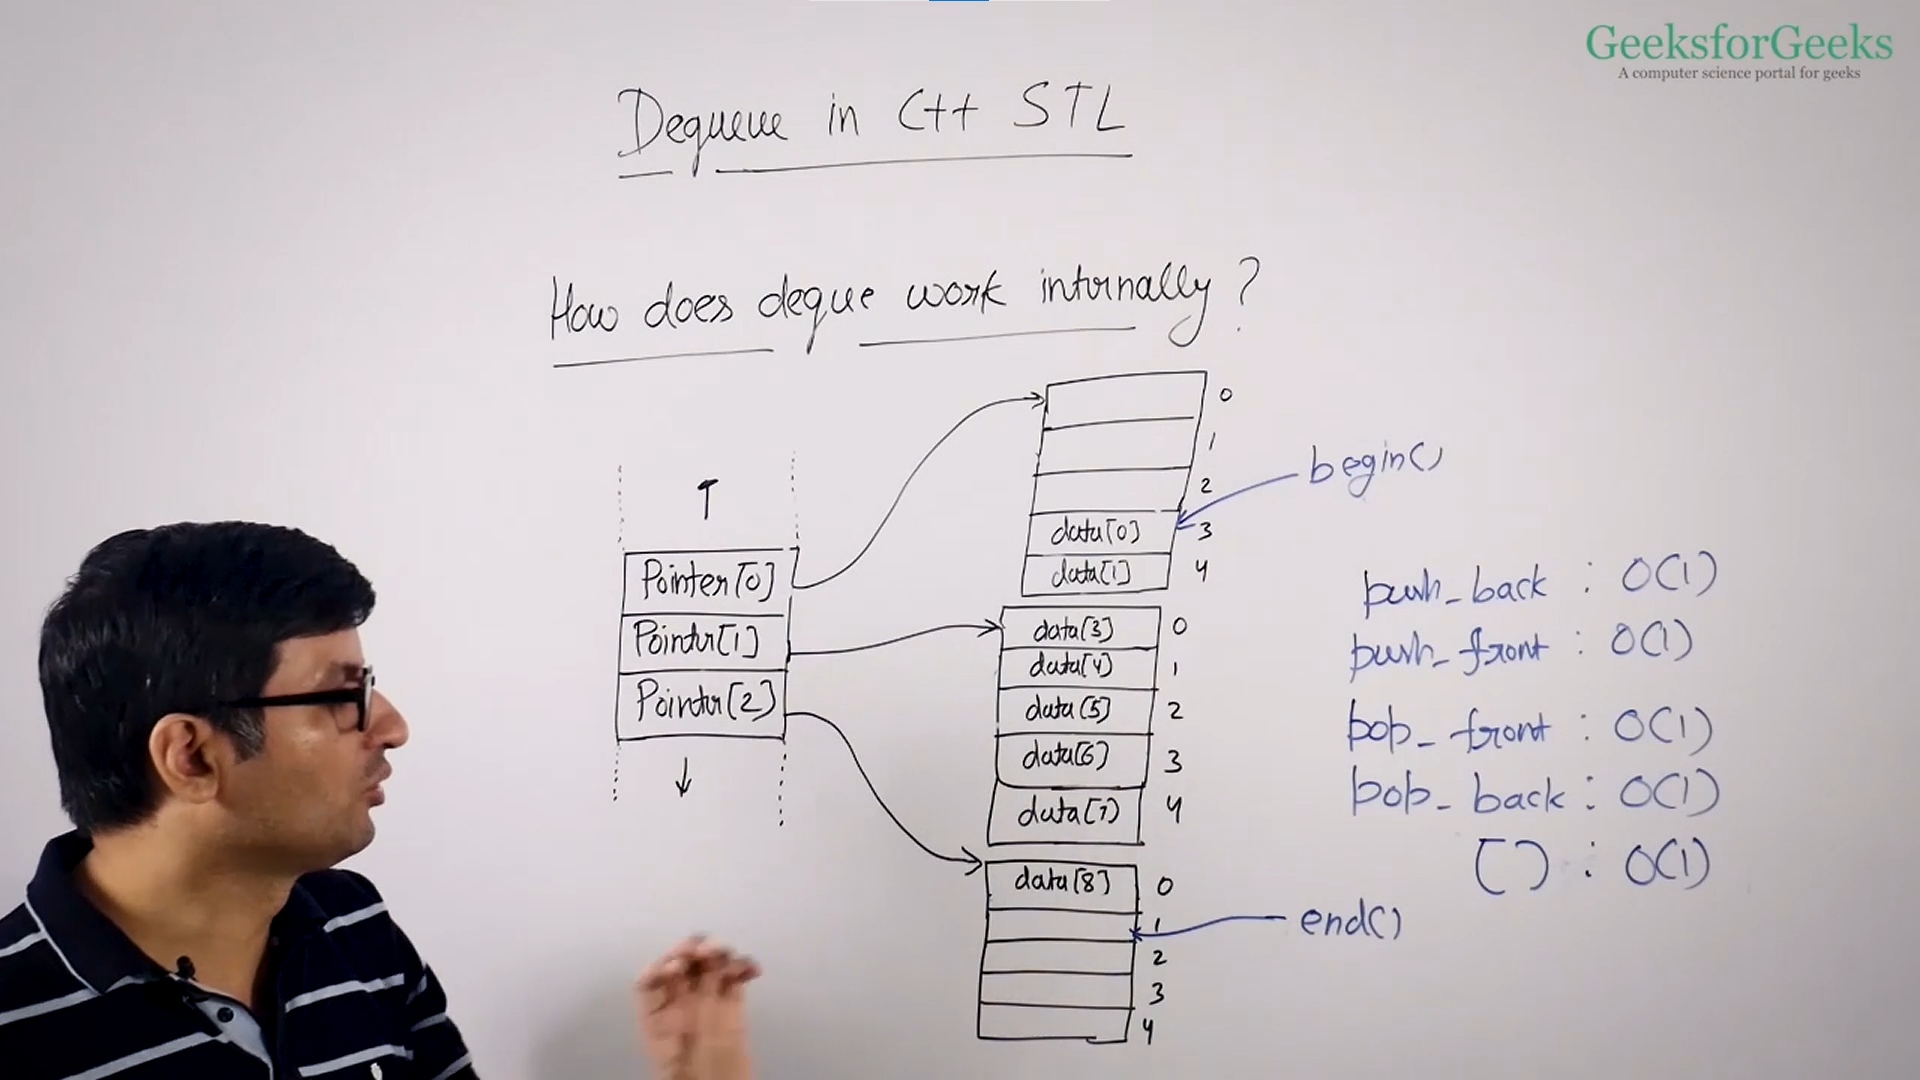 GeeksforGeeks
A computer science portal for geeks
Dequeue in C++ STL
How does deque work internally?
0
1
2
data[0] 3
data[1] 4
Pointer[0]
Pointer[1]
Pointer[2]
data[3] 0
data[4] 1
data[5] 2
data[6] 3
data[7] 4
data[8] 0
1
2
3
4
begin()
end()
push_back : O(1)
push_front : O(1)
pop_front : O(1)
pop_back : O(1)
[] : O(1)